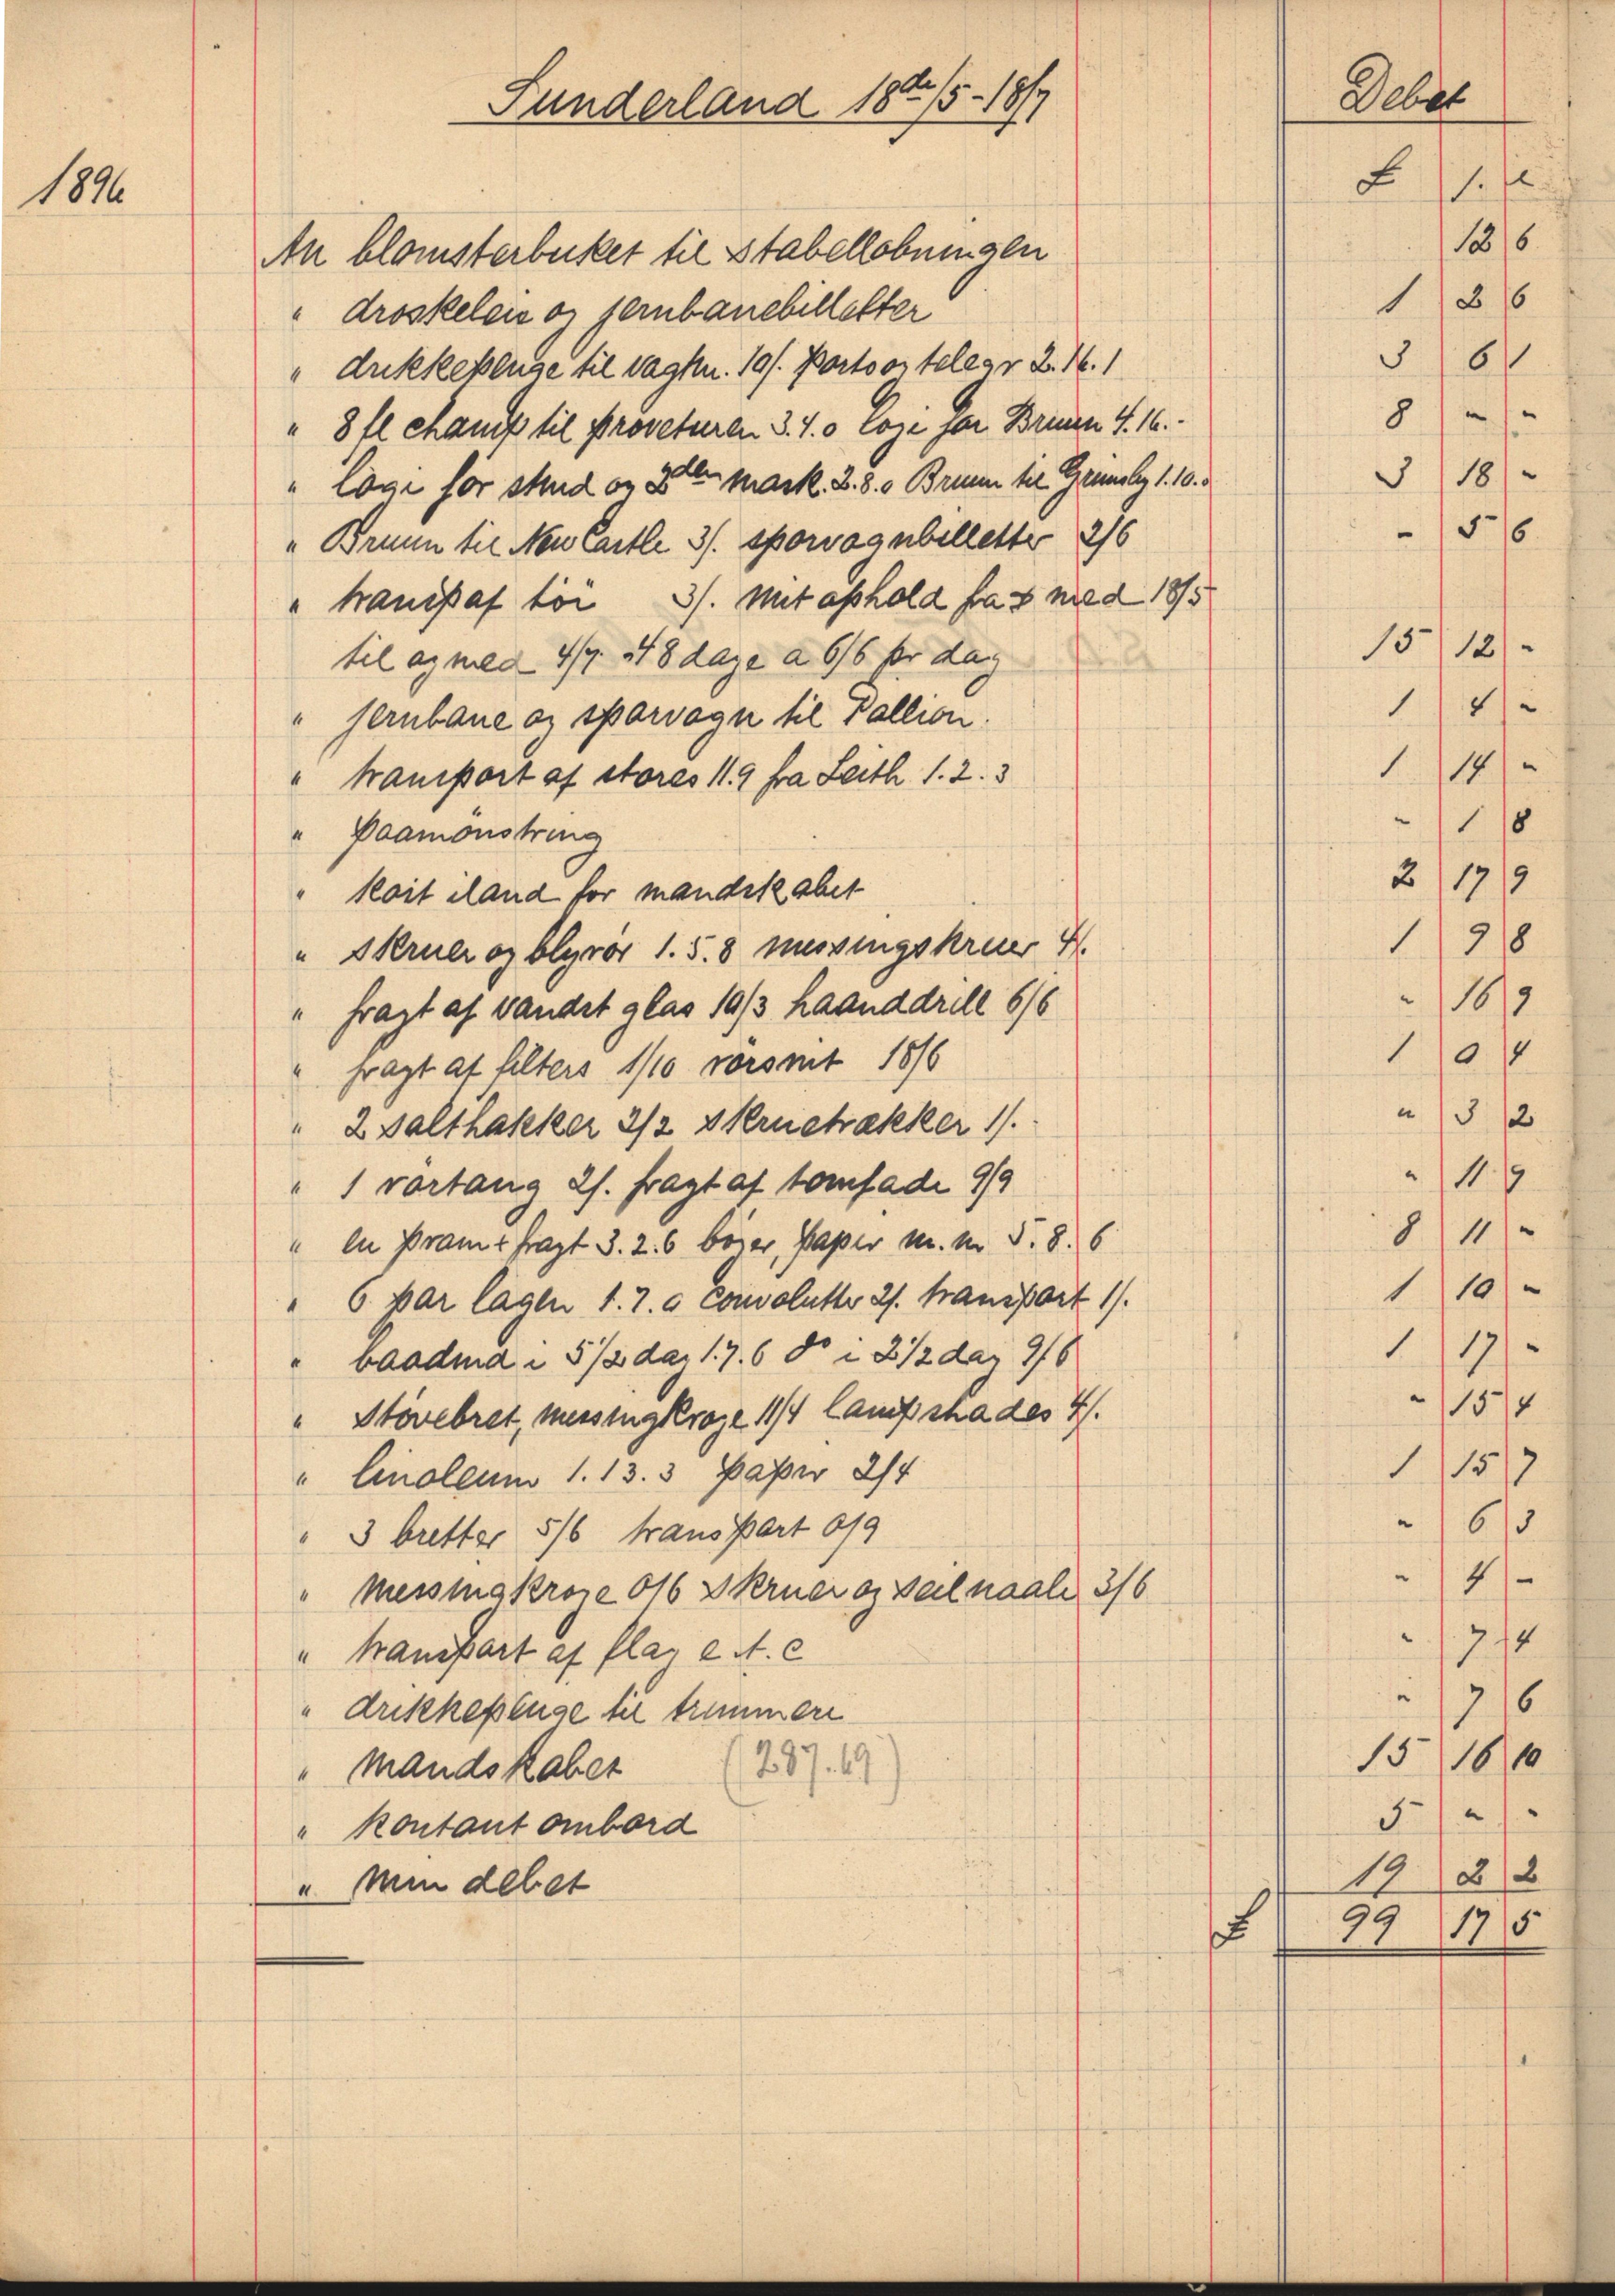 Sunderland 18de/5 - 18/7 Debet
1896 £ s. d
An blomsterbuket til stabellobningen 12 6
" droskeleie og jernbanebilletter 1 2 6
" drikkepenge til vagtm. 10/. Porto og telegr 2. 16. 1 3 6 1
" 8 fl champ til pröveturen 3.4.0 loge for Bruun 4.16.- 8 " "
" loge for stud og 2den mask. 2.8.0 Bruun til Grimsby 1.10.0 3 18 -
" Bruun til New Castle 3/. sporvognbilletter 2/6 - 5 6
" transp af töi 3/. Mit ophold fra & med 18/5
til og med 4/7. 48 dage a 6/6 pr dag 15 12 -
" jernbane og sporvogn til Pallion. 1 4 -
" transport af stores 11.9 fra Leith 1.2.3 1 14 -
" Paamönstring - 1 8
" kost iland for mandskabet 2 17 9
" Skruer og blyrör 1.5.8 messingskruer 4/. 1 9 8
" fragt af vandst glas 10/3 haanddrill 6/6 " 16 9
" fragt af filters 1/10 rörsnit 18/6 1 0 4
" 2 salthakker 2/2 Skruetrækker 1/. " 3 2
" 1 rörtang 2/. fragt af tomfade 9/9 " 11 9
" en pram & fragt 3.2.6 böger, papir m.m 5.8.6 8 11 -
" 6 par lagen 1.7.0 convolutter 2/. transport 1/. 1 10 -
" baadmd i 5 1/2 dag 1.7.6 do i 2 1/2 dag 9/6 1 17 -
" Stövebret, messingkroge 11/4 lampshades 4/. " 15 4
" linoleum 1.13.3 papir 2/4 1 15 7
" 3 bretter 5/6 transport 0/9 " 6 3
" Messingkroge 0/6 Skruer og seilnaale 3/6 " 4 -
" transport af flag e.t.c " 7 4
" drikkepenge til trimmere " 7 6
" Mandskabet (287.19) 15 16 10
" kontant ombord 5 " "
" Min debet 19 2 2
£ 99 17 5